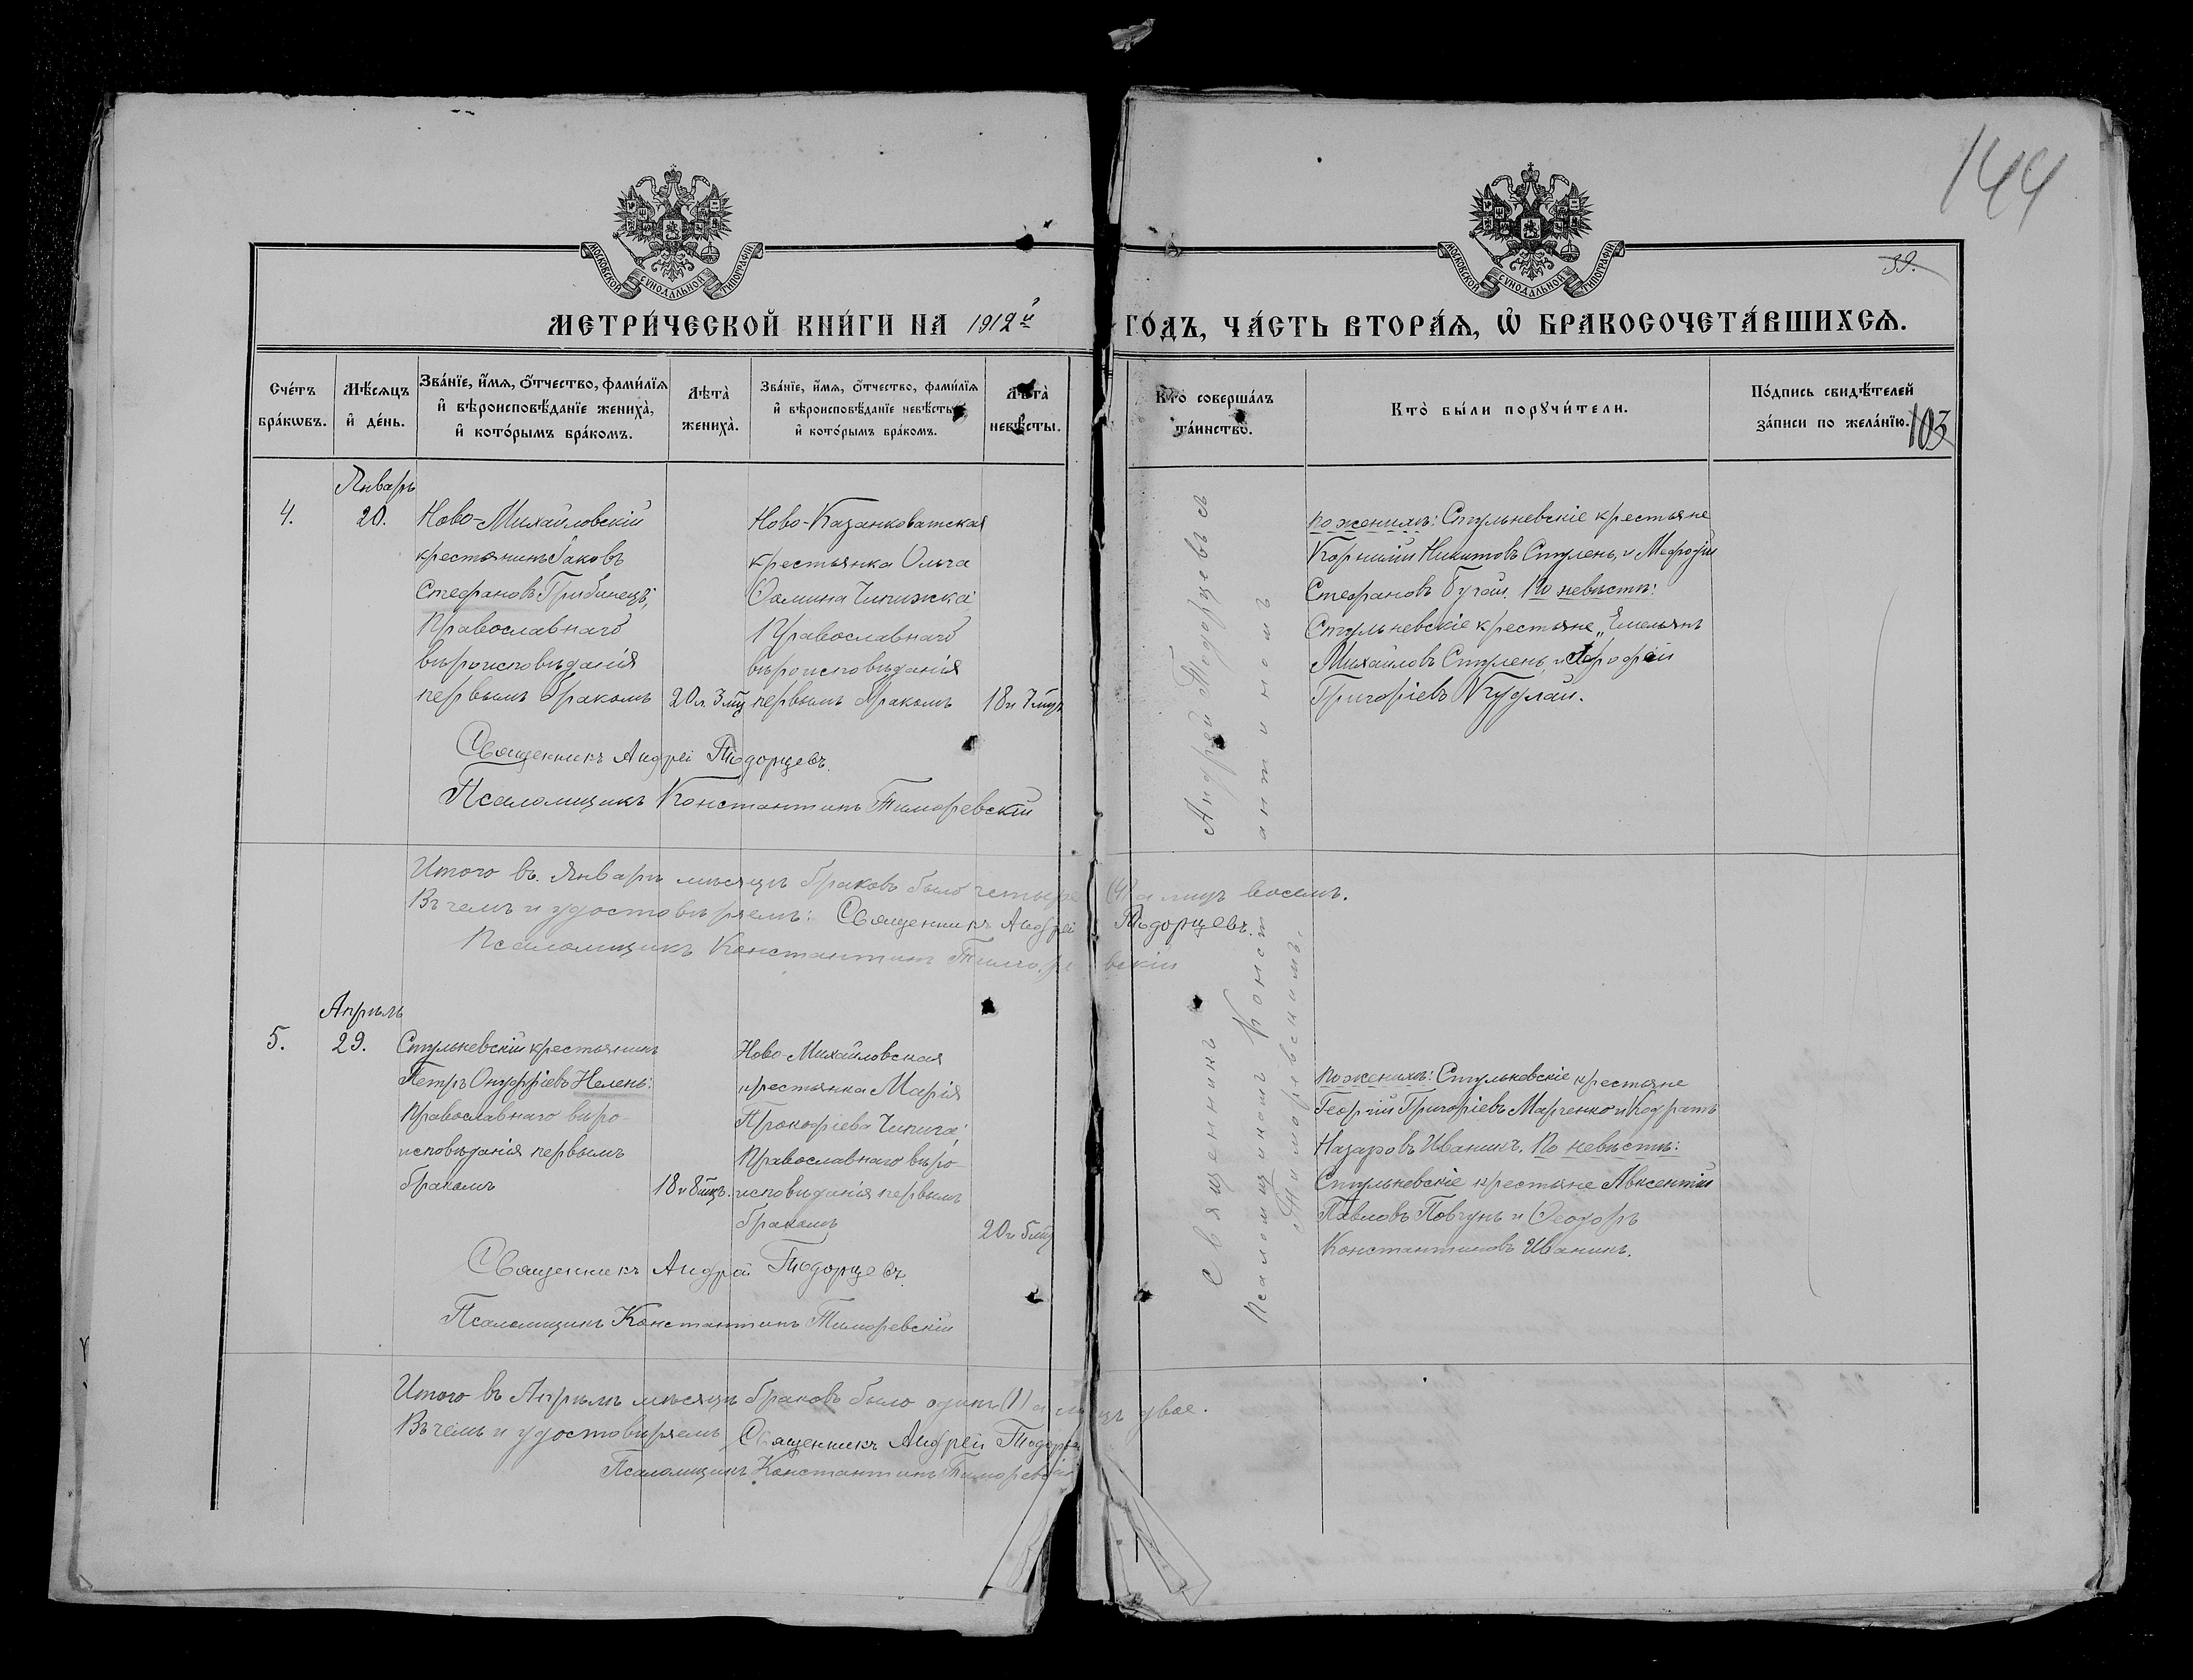 144
39.
МОСКОВСКОЙ СУНОДАЛЬНОЙ ТИПОГРАФІИ
МОСКОВСКОЙ СУНОДАЛЬНОЙ ТИПОГРАФІИ
МЕТРИ́ЧЕСКОЙ КНИ́ГИ НА 1912й ГО́ДЪ, ЧА́СТЬ ВТОРА́Ѧ, Ѽ БРАКОСОЧЕТА́ВШИХСѦ.
Сче́тъ бра́кѡвъ.
Мѣ́сѧцъ и҆ де́нь.
Зва́нїе, и҆́мѧ, ѻ҆́тчество, фами́лїѧ
и҆ вѣроисповѣ́данїе жениха̀,
и҆ кото́рымъ бра́комъ.
Лѣта̀ жениха̀.
Зва́нїе, и҆́мѧ, ѻ҆́тчество, фами́лїѧ
и҆ вѣроисповѣ́данїе невѣ́сты,
и҆ кото́рымъ бра́комъ.
Лѣта̀ невѣ́сты.
Кто̀ соверша́лъ та́инство.
Кто̀ бы́ли порꙋчи́тели.
По́дпись свидѣ́телей
за́писи по жела́нїю.
103
Январь
4. 20.
Ново-Михайловскій
крестьянинъ Іаковъ
Стефановъ Грибинецъ,
Православнаго
вѣроисповѣданія
первымъ бракомъ
20 л. 3 мц
Ново-Казанковатская
крестьянка Ольга
Ѳомина Чипижка
Православнаго
вѣроисповѣданія
первымъ бракомъ
18 и 7 мцъ
Священникъ Андрей Тодорцевъ
Псаломщикомъ Константиномъ
Тиморевскимъ.
По женихѣ: Стульневскіе крестьяне
Корнилій Никитовъ Ступень, и Меѳодій
Стефановъ Бугай. По невѣстѣ:
Стульневскіе крестьяне, Емельянъ
Михайловъ Ступень, и
Григоріевъ Кудлай.
Священникъ Андрей Тодорцевъ.
Псаломщикъ Константинъ Тиморевскій
Итого въ Январѣ мѣсяцѣ браковъ было четыре (4) а лицъ восемь.
Въ чемъ и удостовѣряемъ: Священникъ Андрей Тодорцевъ.
Псаломщикъ Константинъ Тиморевскій
Апрѣль
5. 29.
Стульневскій крестьянинъ
Петръ Онуфріевъ Нелень:
Православнаго вѣро-
исповѣданія первымъ
бракомъ
18 и 8 мцъ.
Ново-Михайловская
крестьянка Марія
Прокофіева Чипига;
Православнаго вѣро-
исповѣданія первымъ
бракомъ
20 и 5 мц
По женихѣ: Стульневскіе крестьяне
Георгій Григоріевъ Марченко и Кодратъ
Назаровъ Иваникъ. По невѣстѣ:
Стульневскіе крестьяне Авксентій
Павловъ Повгунъ и Ѳеодоръ
Константиновъ Иваникъ.
Священникъ Андрей Тодорцевъ.
Псаломщикъ Константинъ Тиморевскій
Итого въ Апрѣлѣ мѣсяцѣ браковъ было одинъ (1) а лицъ двое.
Въ чемъ и удостовѣряемъ Священникъ Андрей Тодорцевъ
Псаломщикъ Константинъ Тиморевскій